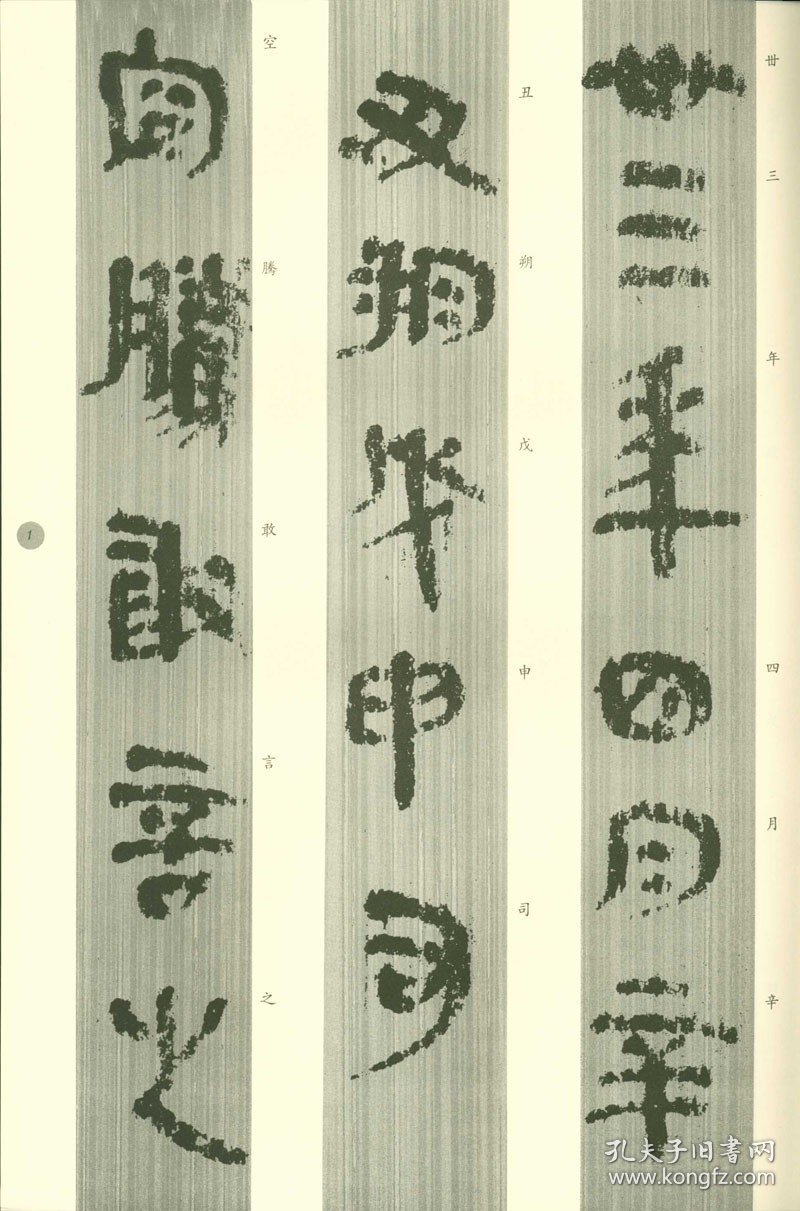 卅三年四月辛
丑朔戊申司
空腾敢言之
1
孔夫子旧书网
kongfz.com